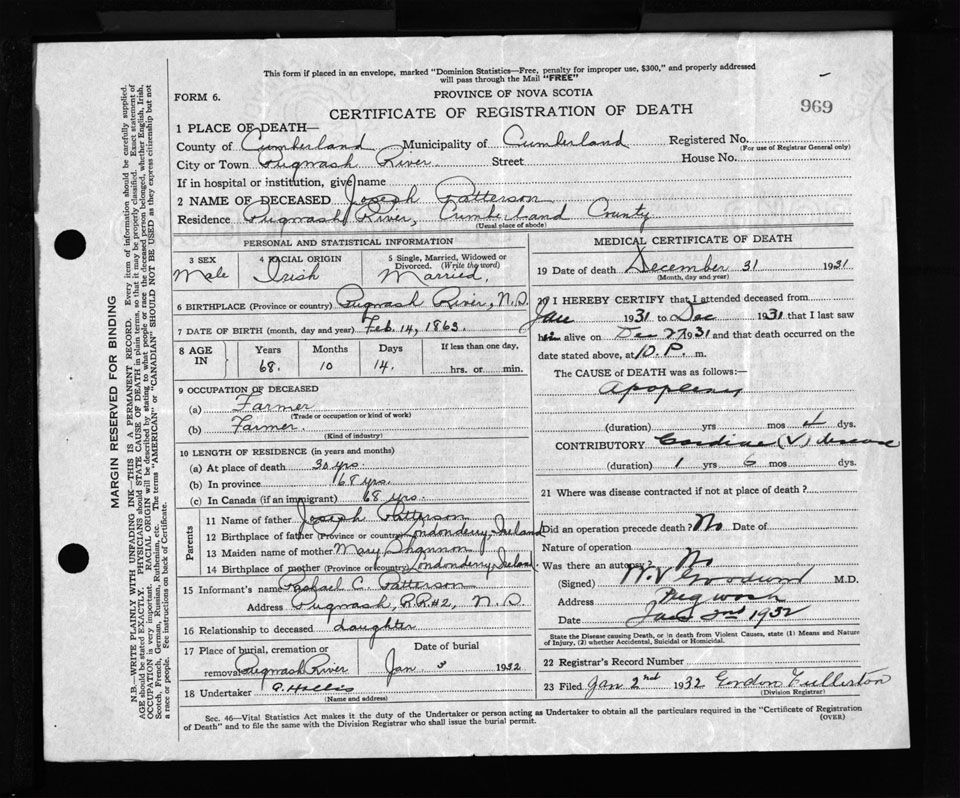 This form if placed in an envelope, marked "Dominion Statistics—Free, penalty for improper use, $300," and properly addressed
will pass through the Mail "FREE"
FORM 6.
PROVINCE OF NOVA SCOTIA
CERTIFICATE OF REGISTRATION OF DEATH
969
1 PLACE OF DEATH—
County of Cumberland Municipality of Cumberland Registered No.
(For use of Registrar General only)
City or Town Pugwash River Street House No.
If in hospital or institution, give name
2 NAME OF DECEASED Joseph Patterson
Residence Pugwash River, Cumberland County
(Usual place of abode)
PERSONAL AND STATISTICAL INFORMATION
3 SEX 4 RACIAL ORIGIN 5 Single, Married, Widowed or
Divorced. (Write the word)
Male Irish Married.
6 BIRTHPLACE (Province or country) Pugwash River, N.S.
7 DATE OF BIRTH (month, day and year) Feb. 14, 1863.
8 AGE IN Years Months Days If less than one day,
68. 10 14. hrs. or min.
9 OCCUPATION OF DECEASED
(a) Farmer
(Trade or occupation or kind of work)
(b) Farmer.
(Kind of industry)
10 LENGTH OF RESIDENCE (in years and months)
(a) At place of death 30 yrs.
(b) In province 68 yrs.
(c) In Canada (if an immigrant) 68 yrs.
Parents
11 Name of father Joseph Patterson
12 Birthplace of father (Province or country) Londonderry, Ireland
13 Maiden name of mother Mary Shannon
14 Birthplace of mother (Province or country) Londonderry, Ireland.
15 Informant's name Rachael C. Patterson
Address Pugwash, R.R.#2, N.S.
16 Relationship to deceased daughter
17 Place of burial, cremation or
removal Pugwash River
Date of burial
Jan 3 1932
18 Undertaker Hollis
(Name and address)
MEDICAL CERTIFICATE OF DEATH
19 Date of death December 31 1931
(Month, day and year)
20 I HEREBY CERTIFY that I attended deceased from
Jan 1931 to Dec 1931 that I last saw
him alive on Dec 27 1931 and that death occurred on the
date stated above, at 10. P. m.
The CAUSE of DEATH was as follows:—
Apoplexy
(duration) yrs mos 4 dys.
CONTRIBUTORY Cardiac (V) disease
(duration) 1 yrs 6 mos dys.
21 Where was disease contracted if not at place of death?
Did an operation precede death? No Date of
Nature of operation
Was there an autopsy? No
(Signed) Goodwin M.D.
Address Pugwash
Date Jan 2nd 1932
State the Disease causing Death, or in death from Violent Causes, state (1) Means and Nature
of Injury, (2) whether Accidental, Suicidal or Homicidal.
22 Registrar's Record Number
23 Filed Jan 2nd 1932 Gordon Fullerton
(Division Registrar)
Sec. 46—Vital Statistics Act makes it the duty of the Undertaker or person acting as Undertaker to obtain all the particulars required in the "Certificate of Registration
of Death" and to file the same with the Division Registrar who shall issue the burial permit.
(OVER)
MARGIN RESERVED FOR BINDING
N.B.—WRITE PLAINLY WITH UNFADING INK—THIS IS A PERMANENT RECORD. Every item of information should be carefully supplied.
AGE should be stated EXACTLY. PHYSICIANS should STATE CAUSE OF DEATH in plain terms, so that it may be properly classified. Exact statement of
OCCUPATION is very important. RACIAL ORIGIN will be described by stating to what people or race the deceased person belonged, whether English, Irish,
Scotch, French, German, Russian, Ruthenian, etc. The terms "AMERICAN" or "CANADIAN" SHOULD NOT BE USED as they express citizenship but not
a race or people. Fee instructions on back of Certificate.